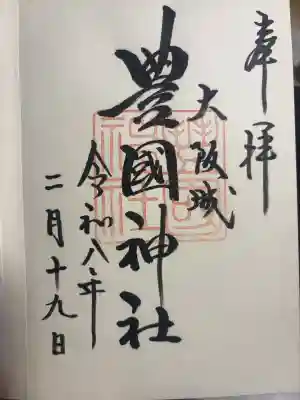 奉拝
大阪城
豊國神社
令和八年
二月十九日